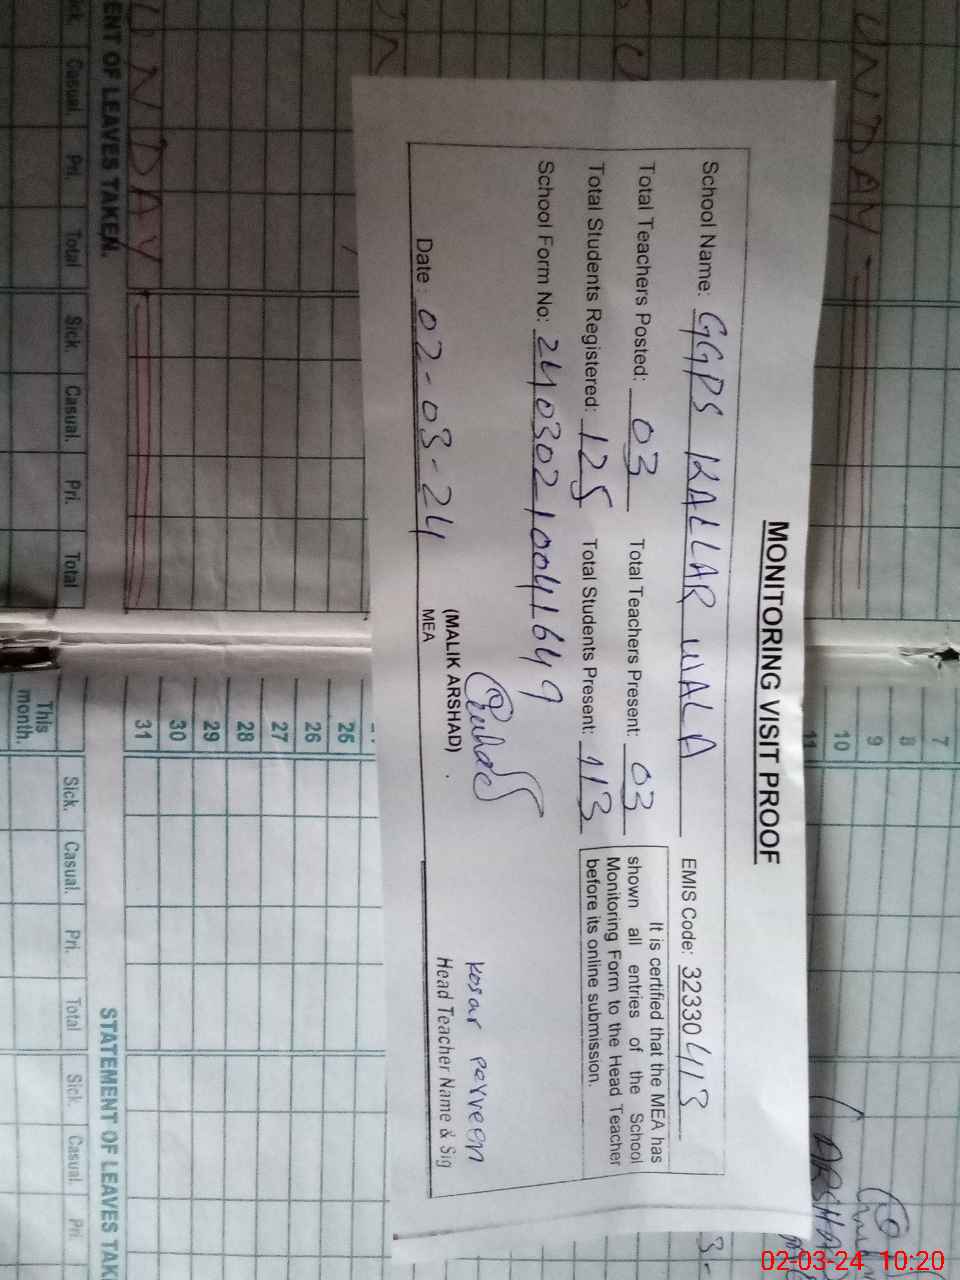 MONITORING VISIT PROOF
School Name: GGPS KALLAR WALA EMIS Code: 32330413
Total Teachers Posted: 03 Total Teachers Present: 03
Total Students Registered: 125 Total Students Present: 113
It is certified that the MEA has
shown all entries of the School
Monitoring Form to the Head Teacher
before its online submission.
School Form No: 24030210041649
Date: 02-03-24
(MALIK ARSHAD)
MEA
Kosar Perveen
Head Teacher Name & Sig
UNDAY
7
8
9
10
11
25
26
27
28
29
30
31
This month.
UNDAY
ENT OF LEAVES TAKEN.
STATEMENT OF LEAVES TAK
Sick. Casual. Pri. Total Sick. Casual. Pri. Total
Sick. Casual. Pri. Total Sick. Casual. Pri.
02-03-24 10:20